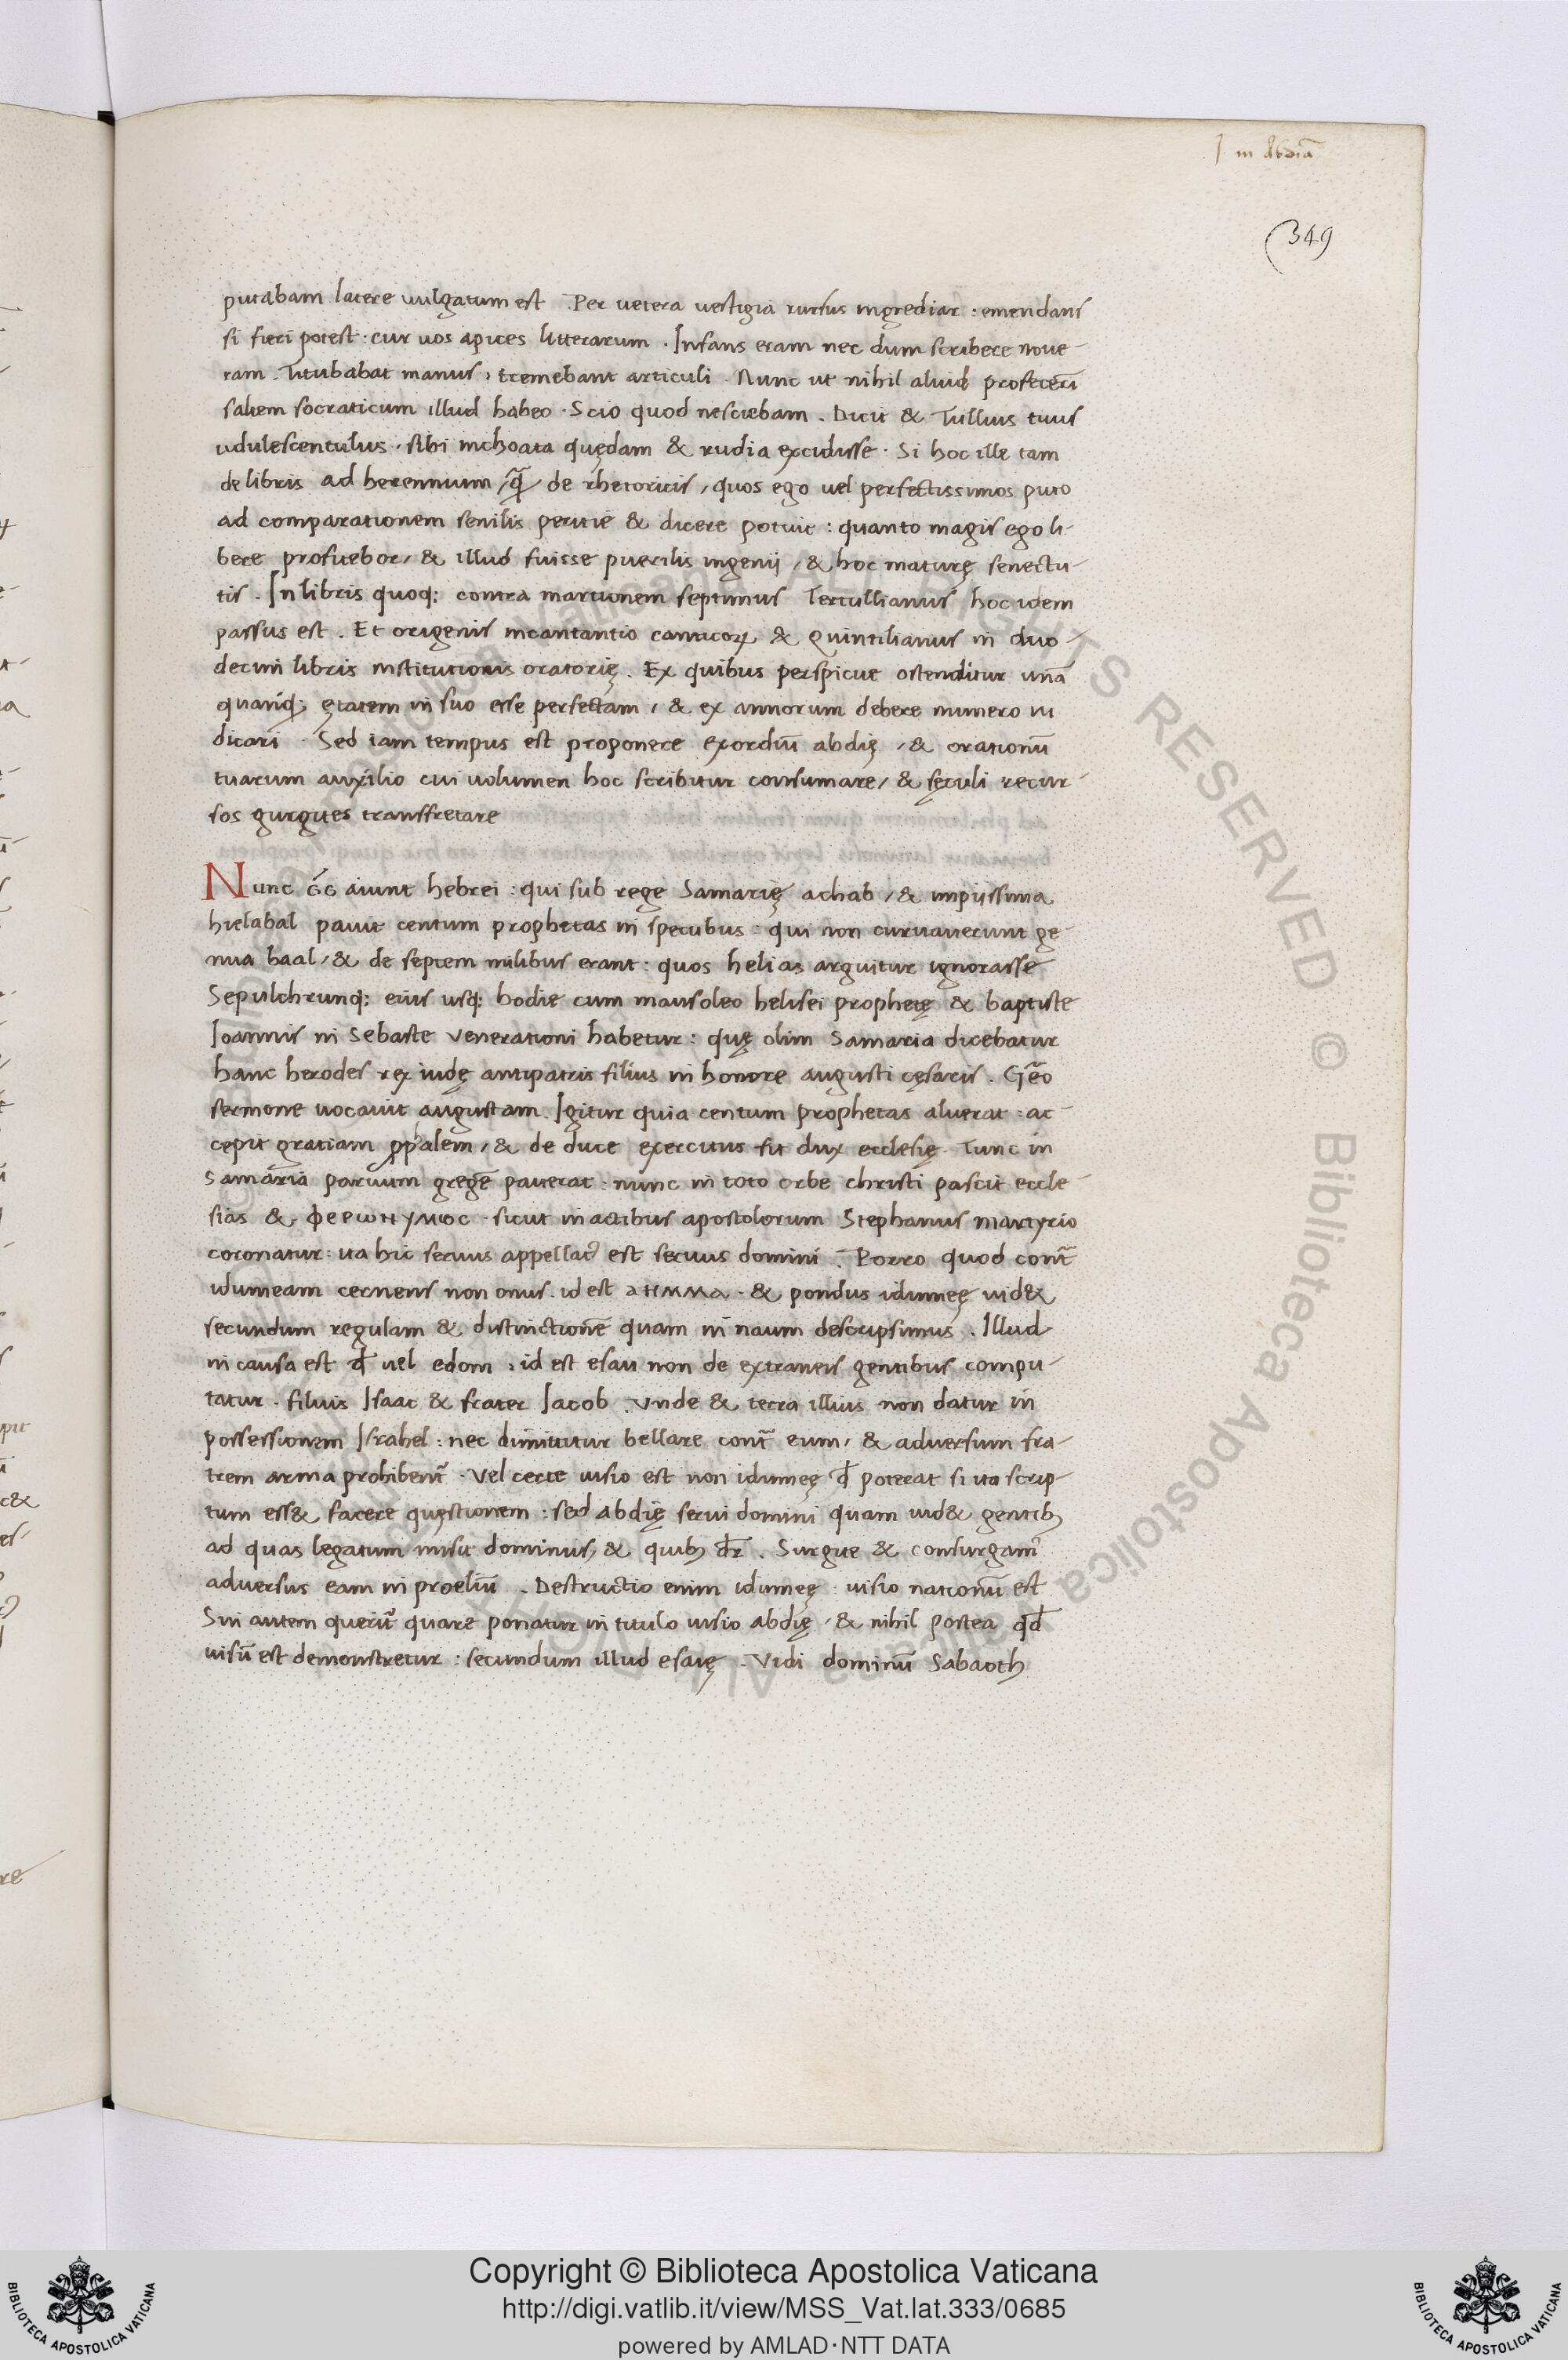 I in Abdiā
349
putabam latere uulgatum est . Per uetera uestigia rursus ingrediar : emendans
si fieri potest : cur uos apices litterarum . Infans eram nec dum scribere noue-
ram . Titubabat manus , tremebant articuli . Nunc ut nihil aliud profecerī
saltem socraticum illud habeo . Scio quod nesciebam . Dicit & Tullius tuus
adulescentulus . sibi inchoata quędam & rudia excidisse . Si hoc ille tam
de libris ad herennium , q̄ de rhetoricis , quos ego uel perfectissimos puto
ad comparationem senilis peritie & dicere potuit : quanto magis ego li-
bere profitebor , & illud fuisse puerilis ingenij , & hoc maturę senectu-
tis . In libris quoq; contra martionem septimus Tertullianus hoc idem
passus est . Et origenis incantantio canticoꝝ & Quintilianus in duo-
decim libris institutionis oratorię . Ex quibus perspicue ostenditur unā
quāq; ętatem in suo esse perfectam , & ex annorum debere numero iu
dicari . Sed iam tempus est proponere exordiū abdię , & orationū
tuarum auxilio cui uolumen hoc scribitur consumare , & sęculi recur-
sos gurgites transfretare
Nunc ēē aiunt hebrei : qui sub rege Samarię achab , & impiissima
hielabal pauit centum prophetas in specubus : qui non curuauerunt ge-
nua baal , & de septem milibus erant : quos helias arguitur ignorasse
Sepulchrunq; eius usq; hodie cum mausoleo helisei prophetę & baptiste
Ioannis in Sebaste venerationi habetur : quę olim Samaria dicebatur
hanc herodes rex iudę antipatris filius in honore augusti cęsaris . Grēo
sermone uocauit augustam . Igitur quia centum prophetas aluerat : ac-
cepit gratiam ꝓphalem , & de duce exercitus fit dux ecclesię . Tunc in
Samāria paruum gregē pauerat : nunc in toto orbe christi pascit eccle-
sias & φερωнγмοс . sicut in actibus apostolorum Stephanus martyrio
coronatur : ita hic seruus appellatꝰ est seruus domini . Porro quod contꝰ
idumeam cernens non onus . id est ангмма . & pondus idumeę uid&
secundum regulam & distinctionē quam in naum descripsimus . Illud
in causa est qđ uel edom , id est esau non de extraneis gentibus compu-
tatur . filius Isaac & frater Iacob . Vnde & terra illius non datur in
possessionem Israhel : nec dimittitur bellare contꝰ eum , & aduersum fra-
trem arma prohibentꝰ . Vel certe uisio est non idumeę qđ poterat si ita scrip-
tum ess& facere quęstionem : sed abdię serui domini quam uid& gentibꝫ
ad quas legatum misit dominus , & quibꝫ dr̄ . Surgite & consurgamꝰ
aduersus eam in proeliū . Destructio enim idumeę : uisio nationū est
Sin autem queritꝰ quare ponatur in titulo uisio abdię , & nihil postea qđ
uisū est demonstretur : secundum illud esaię . Vidi dominū Sabaoth
Copyright © Biblioteca Apostolica Vaticana
http://digi.vatlib.it/view/MSS_Vat.lat.333/0685
powered by AMLAD·NTT DATA